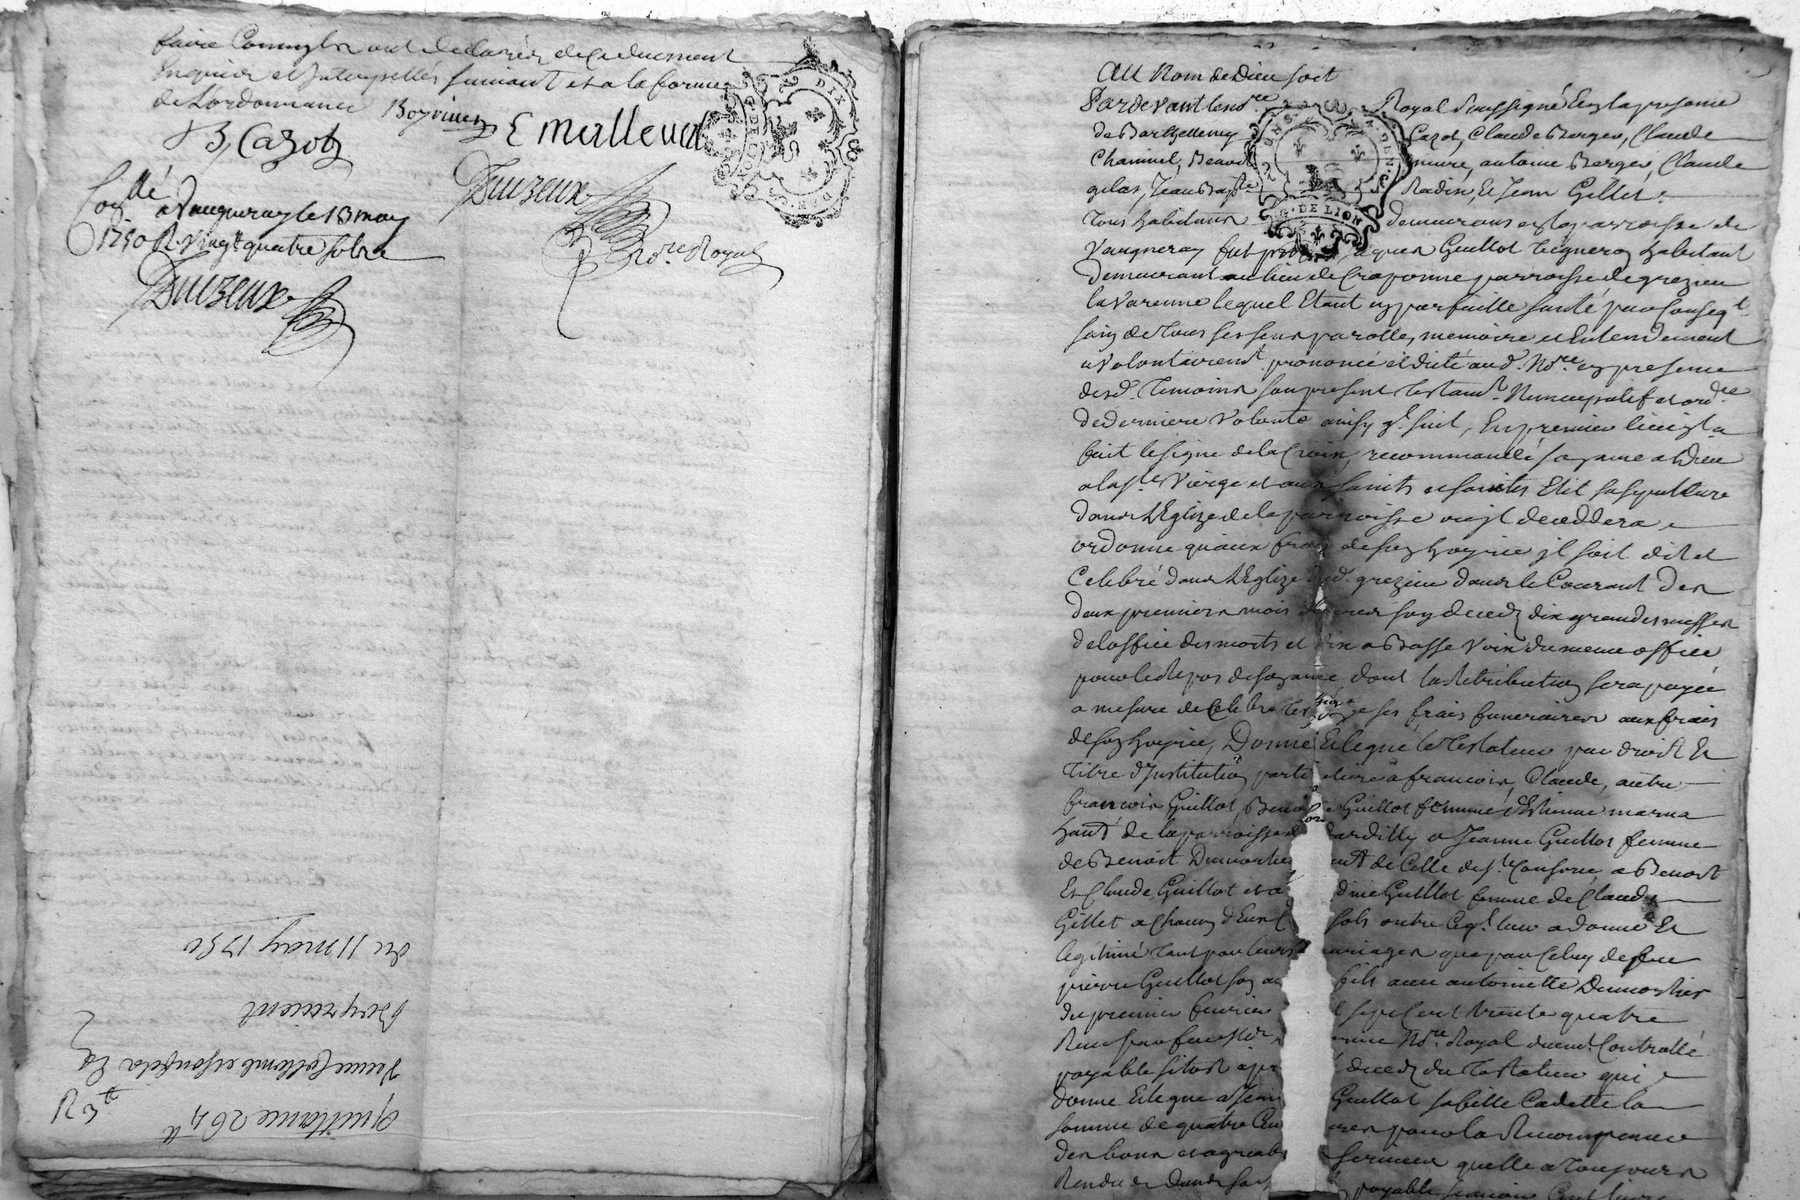 faire Comme ont declarés de ce duement
Enquis et Interpellés suivant et a la forme
de Lordonnance Boyrivien
B, Cazot E Mallevat
DIX DEN. G. DE LION
Duzeux
No.re Royal
Con.llé a Vaugneray le 13 may
1750 R. Vingt quatre sols
Duzeux
quittance 264 tt
R 3 tt
Boyrivient
du 11 may 1750
Au Nom de Dieu soit
Pardevant le no.re Royal soussigné En la presance
UN S. DEN. G. DE LION
de Barthellemy Cazot, Claude Berger, Claude
Chaninel, Benoit antoine Berger, Claude
gilas, Jean Bap.te Radix, Et Jean Gillet
tous habitans demeurans en la parroisse de
Vaugneray fut present Guillot Vigneron habitant
demeurant au lieu de Craponne parroisse de grezieu
la Varenne lequel Etant en parfaitte santé par Conseq.t
sain de tous ses sens parolle, memoire et Entendement
a volontairem.t prononcé et dicté aud. No.re en presence
desd. Temoins son present testam.t Nuncupatif et ord.ce
de derniere Volonté ainsy q. suit, En premier lieu il a
fait le signe de la Croix, recommandé son ame a Dieu
a la S.te Vierge et aux saints et saintes Elit sa sepulture
dans L'Eglize de la parroisse ou il deceddera
ordonne qu'aux frais de son hoyrie il soit dit et
Celebré dans L'Eglize dud. grezieu dans le Courant des
deux premiers mois apres son deceds dix grandes messes
de loffice des morts et dix a Basse Voix du meme office
pour le Repos de son ame dont la Retribution sera payée
a mesure de Celebr ses frais funeraires aux frais
de son hoyrie, Donne Et legue le Testateur par droit Et
titre d'Institution particuliere a francois, Claude, autre
francois Guillot, Benoite Guillot femme d'Estienne marna
hant de la parroisse de dardilly a Jeanne Guillot femme
de Benoit Dumortier hant de Celle de S.t Consorce, a Benoit
Et Claude Guillot et a dine Guillot femme de Claude
Gillet a Chacun d'Eux C sols outre Ceq. leur a donné Et
legitimé tant par leurs mariages que par Celuy de feu
pierre Guillot son fils avec antoinette Dumortier
du premier fevrier sept Cent trente quatre
Receu par No.re Royal duem.t Controllé
payable sitot apres deceds du Testateur qui
donne Et legue a Jeanne Guillot sa fille Cadette la
somme de quatre Cen res pour la Recompence
des bons et agreab services quelle a toujours
Rendu payable